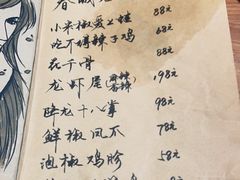 春 88元
小米椒爱上蛙 88元
吃不厌辣子鸡 68元
花千骨 78元
龙虾尾(香辣 麻辣) 198元
降龙十八掌 88元
鲜椒凤爪 78元
泡椒鸡胗 58元